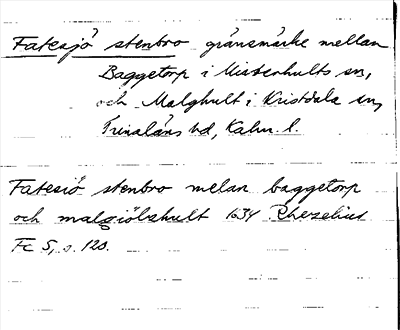 Fatesjö stenbro gränsmärke mellan
Baggetorp i Misterhults sn,
och Malghult i Kristdala sn,
Tunaläns hd, Kalm. l.
Fatesiö stenbro melan baggetorp
och malgiölzhult 1634 Rhezelius
Fc 5, s. 120.